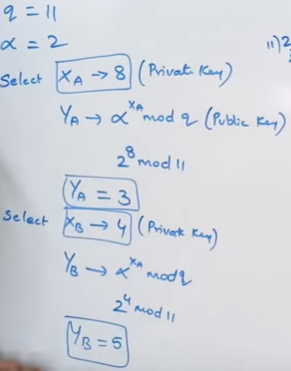 q = 11
α = 2
11)2
Select X_A → 8 (Private Key)
Y_A → α^X_A mod q (Public Key)
2^8 mod 11
Y_A = 3
Select X_B → 4 (Private Key)
Y_B → α^X_A mod q
2^4 mod 11
Y_B = 5